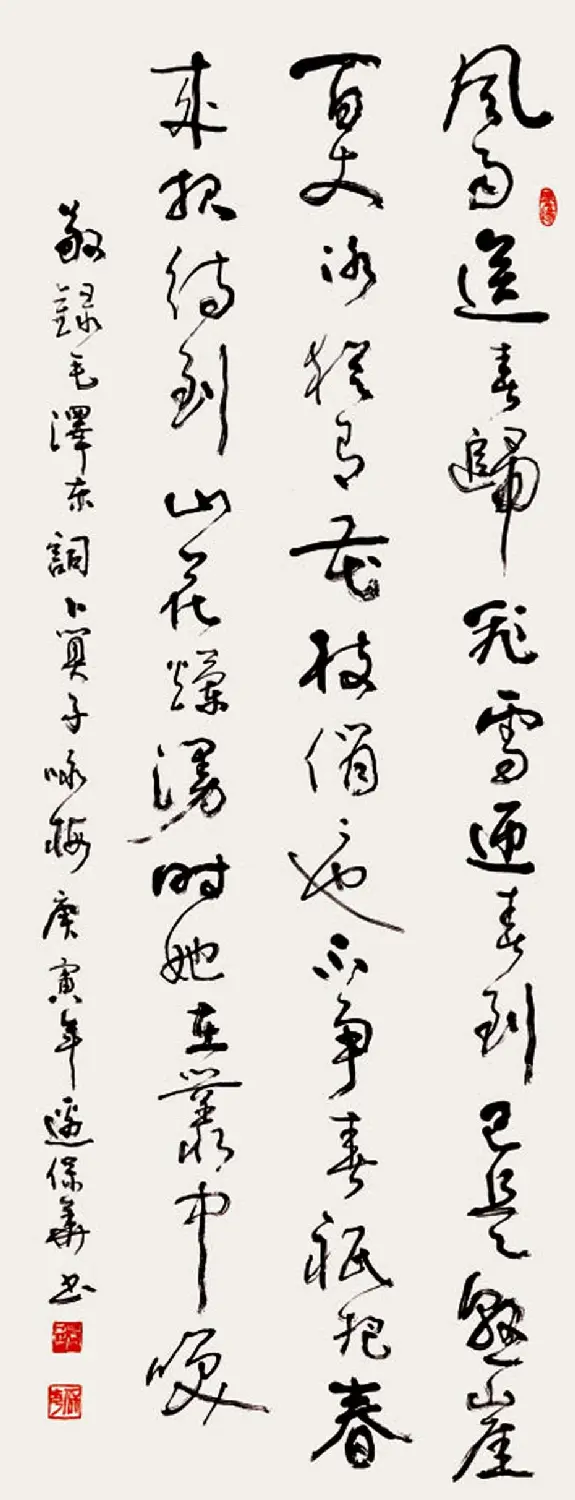 風雨送春歸飛雪迎春到已是懸崖
百丈冰猶有花枝俏々也不争春祇把春
来报待到山花爛漫时她在叢中咲
敬録毛澤东詞卜算子咏梅庚寅年邊保華书